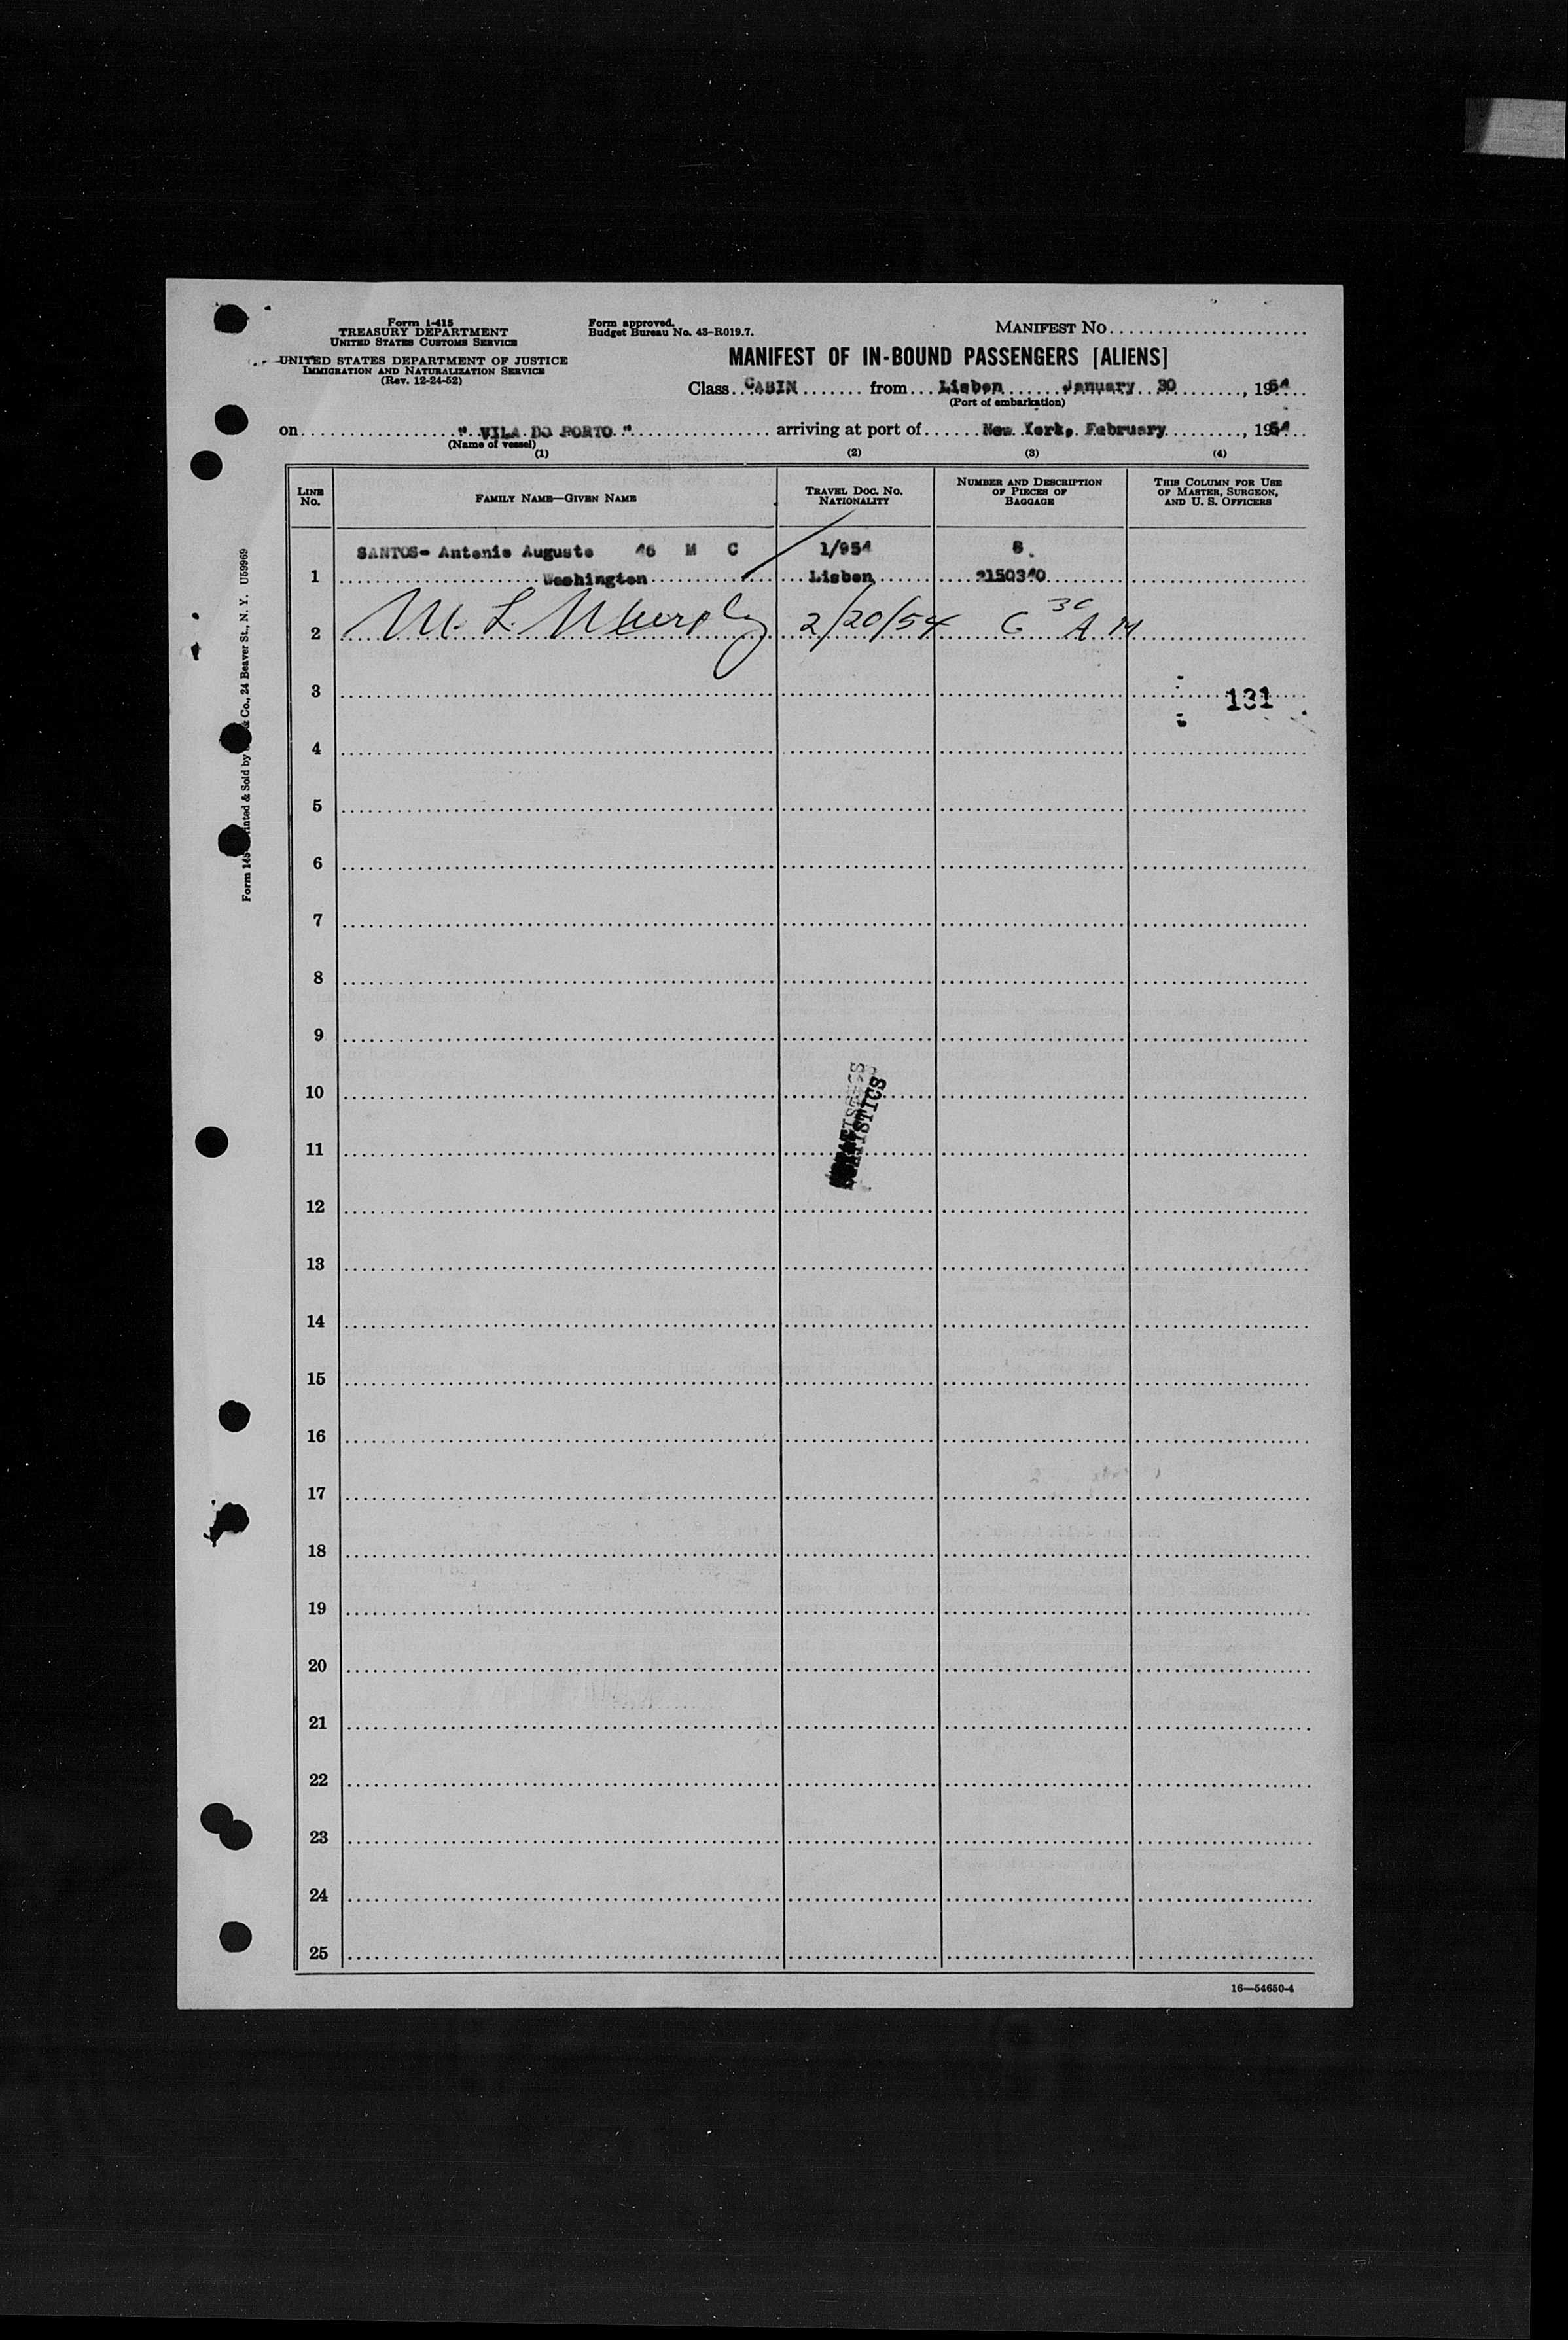 Form I-415
TREASURY DEPARTMENT
UNITED STATES CUSTOMS SERVICE
UNITED STATES DEPARTMENT OF JUSTICE
IMMIGRATION AND NATURALIZATION SERVICE
(Rev. 12-24-52)
Form approved.
Budget Bureau No. 43-R019.7.
MANIFEST NO.
MANIFEST OF IN-BOUND PASSENGERS [ALIENS]
Class CABIN from Lisbon January 30, 1954
(Port of embarkation)
on " VILA DO PORTO " arriving at port of New York, February, 1954
(Name of vessel)
(1) (2) (3) (4)
LINE NO. FAMILY NAME—GIVEN NAME TRAVEL DOC. NO. NATIONALITY NUMBER AND DESCRIPTION OF PIECES OF BAGGAGE THIS COLUMN FOR USE OF MASTER, SURGEON, AND U. S. OFFICERS
SANTOS- Antonio Augusto 46 M C 1/954
1 Washington Lisbon
2 M. L. Murphy 2/20/54 6 30 A M
3 131
4
5
6
7
8
9
10
11 STATISTICS
12
13
14
15
16
17
18
19
20
21
22
23
24
25
16—54650-4
& Co., 24 Beaver St., N. Y. U59969